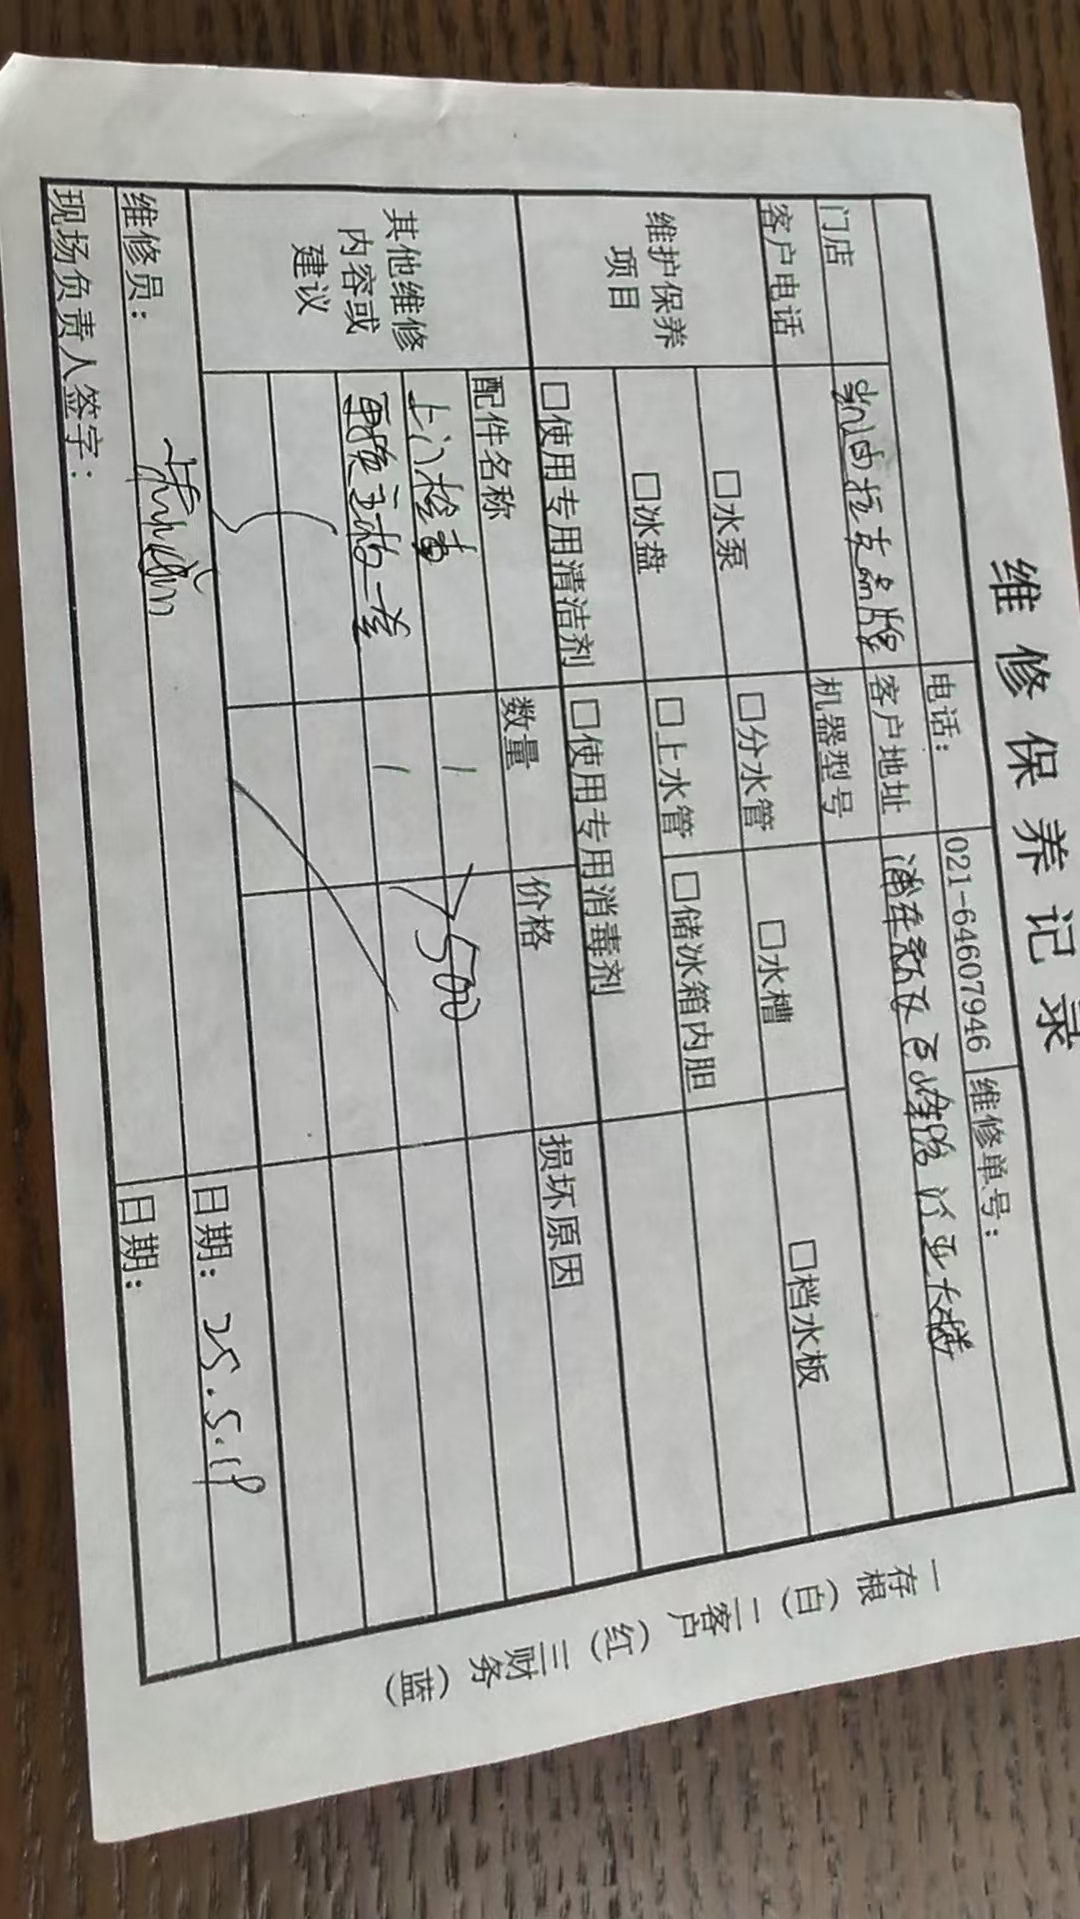 维修保养记录
电话： 021-64607946 维修单号：
门店 客户地址 浦东 大楼
客户电话 机器型号
维护保养项目 □水泵 □分水管 □水槽 □档水板
□冰盘 □上水管 □储冰箱内胆
□使用专用清洁剂 □使用专用消毒剂
其他维修内容或建议 配件名称 数量 价格 损坏原因
上门检查 1 500
更换主板一套 1
维修员： 日期：25.5.19
现场负责人签字： 日期：
一存根（白）二客户（红）三财务（蓝）